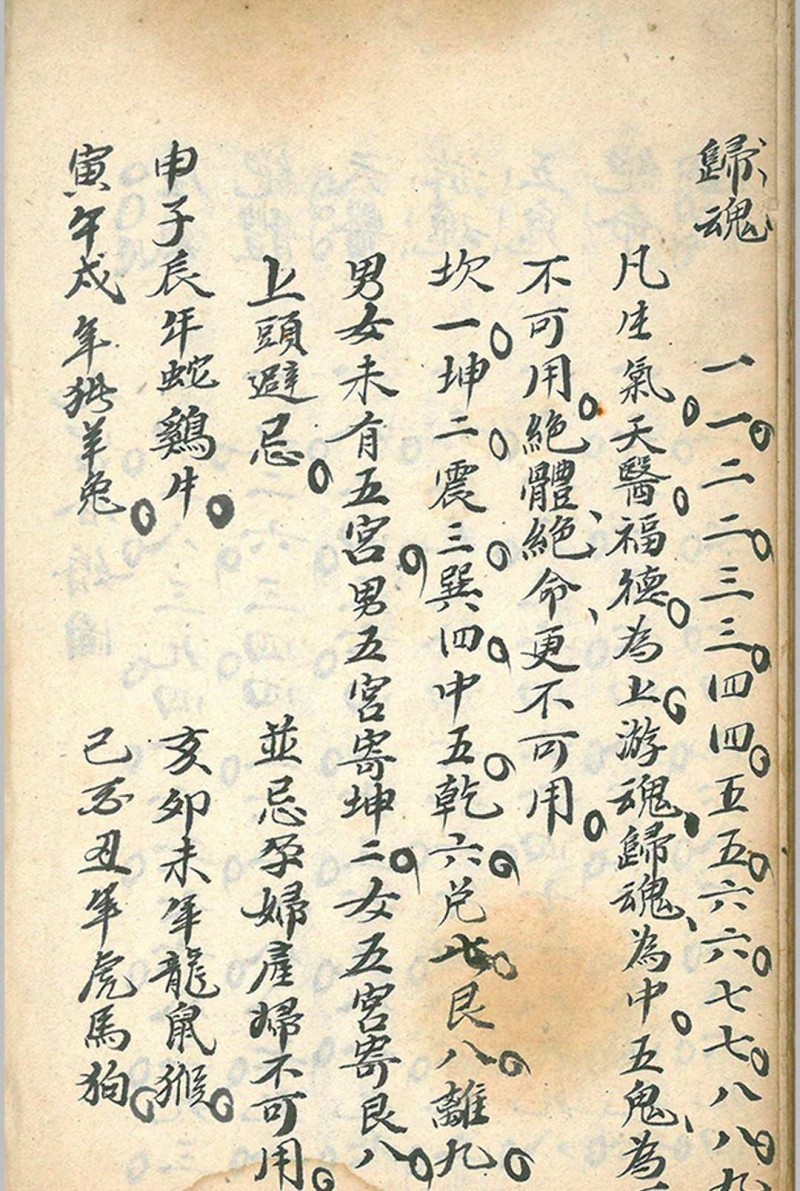 歸魂 一一。二二。三三。四四。五五。六六。七七。八八。九
凡生氣。天醫。福德。為上。游魂、歸魂、為中。五鬼、為
不可用。絕體、絕命、更不可用。
坎一。坤二。震三。巽四。中五。乾六。兌七。艮八。離九。
男女未有五宮。男五宮寄坤二。女五宮寄艮八。
上頭避忌。 並忌孕婦產婦不可用。
申子辰年蛇鷄牛。 亥卯未年龍鼠猴。
寅午戌年猪羊兔。 巳酉丑年虎馬狗。